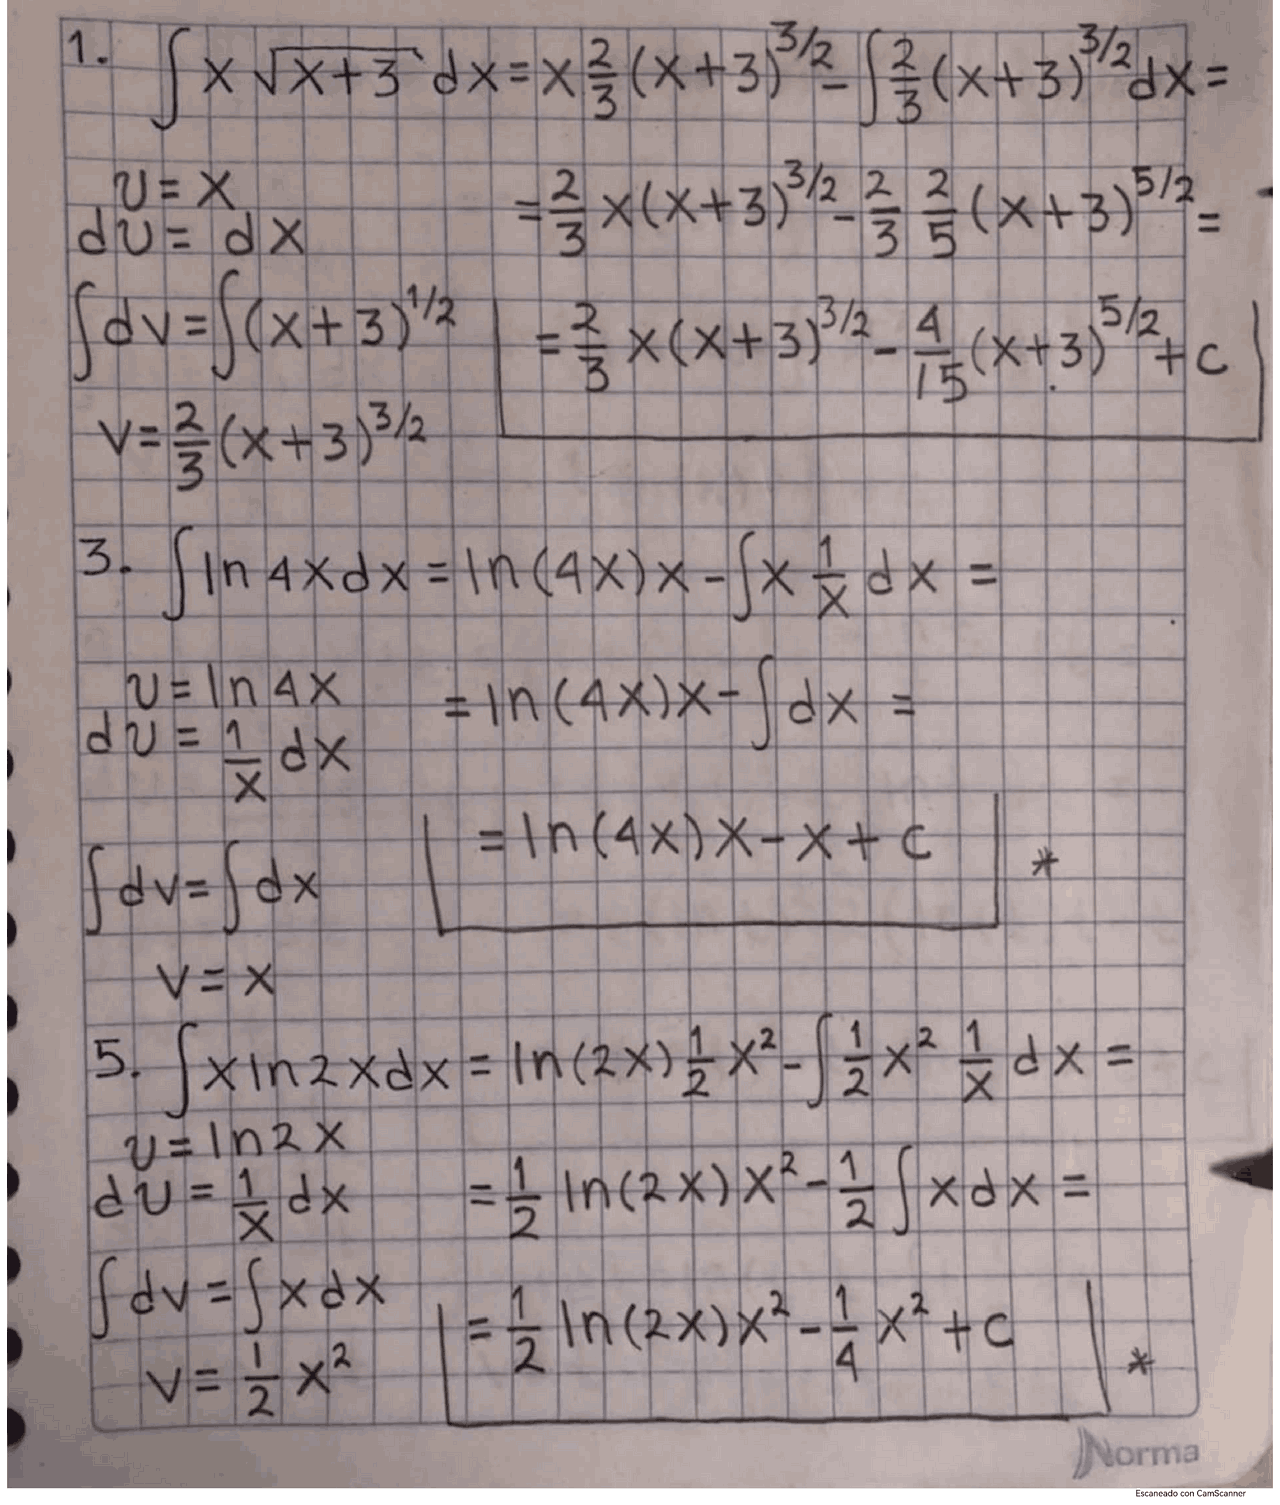 1. ∫ x √(x+3) dx = x 2/3 (x+3)^3/2 - ∫ 2/3 (x+3)^3/2 dx =
u = x
du = dx
= 2/3 x(x+3)^3/2 - 2/3 2/5 (x+3)^5/2 =
∫dv = ∫(x+3)^1/2
= 2/3 x(x+3)^3/2 - 4/15 (x+3)^5/2 + c
v = 2/3 (x+3)^3/2
3. ∫ ln 4x dx = ln(4x)x - ∫ x 1/x dx =
u = ln 4x
= ln(4x)x - ∫ dx =
du = 1/x dx
= ln(4x)x - x + c *
∫dv = ∫dx
v = x
5. ∫ x ln 2x dx = ln(2x) 1/2 x² - ∫ 1/2 x² 1/x dx =
u = ln 2x
du = 1/x dx
= 1/2 ln(2x)x² - 1/2 ∫ x dx =
∫dv = ∫x dx
= 1/2 ln(2x)x² - 1/4 x² + c *
v = 1/2 x²
Norma
Escaneado con CamScanner